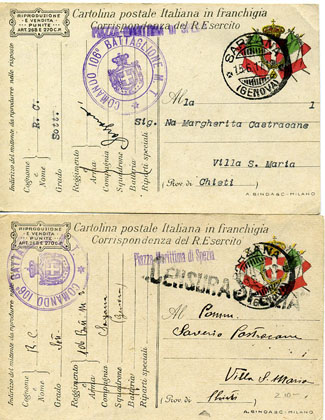 RIPRODUZIONE
E VENDITA
PUNITE
ART. 268 E 270 C.P.
Cartolina postale Italiana in franchigia
Corrispondenza del R. Esercito
COMANDO 106° BATTAGLIONE M. T.
SARZANA
(GENOVA)
Indirizzo del mittente da riprodurre nelle risposte
Cognome
e
Nome
R. C.
Grado
Sott.
Reggimento
Arma
Compagnia
Squadrone
Batteria
Riparti speciali
Alla
Sig. Na Margherita Castracane
Villa S. Maria
(Rov di Chieti
A. BINDA & C. - MILANO
RIPRODUZIONE
E VENDITA
PUNITE
ART. 268 E 270 C.P.
Cartolina postale Italiana in franchigia
Corrispondenza del R. Esercito
COMANDO 106° BATTA
Piazza Marittima di Spezia
CENSURA SPEZIA
Indirizzo del mittente da riprodurre nelle risposte
Cognome
e
Nome
R C
Grado
Reggimento
106
Arma
Compagnia
Squadrone
Batteria
Riparti speciali
Al
Saverio
Villa S. Maria
A. BINDA & C. - MILANO